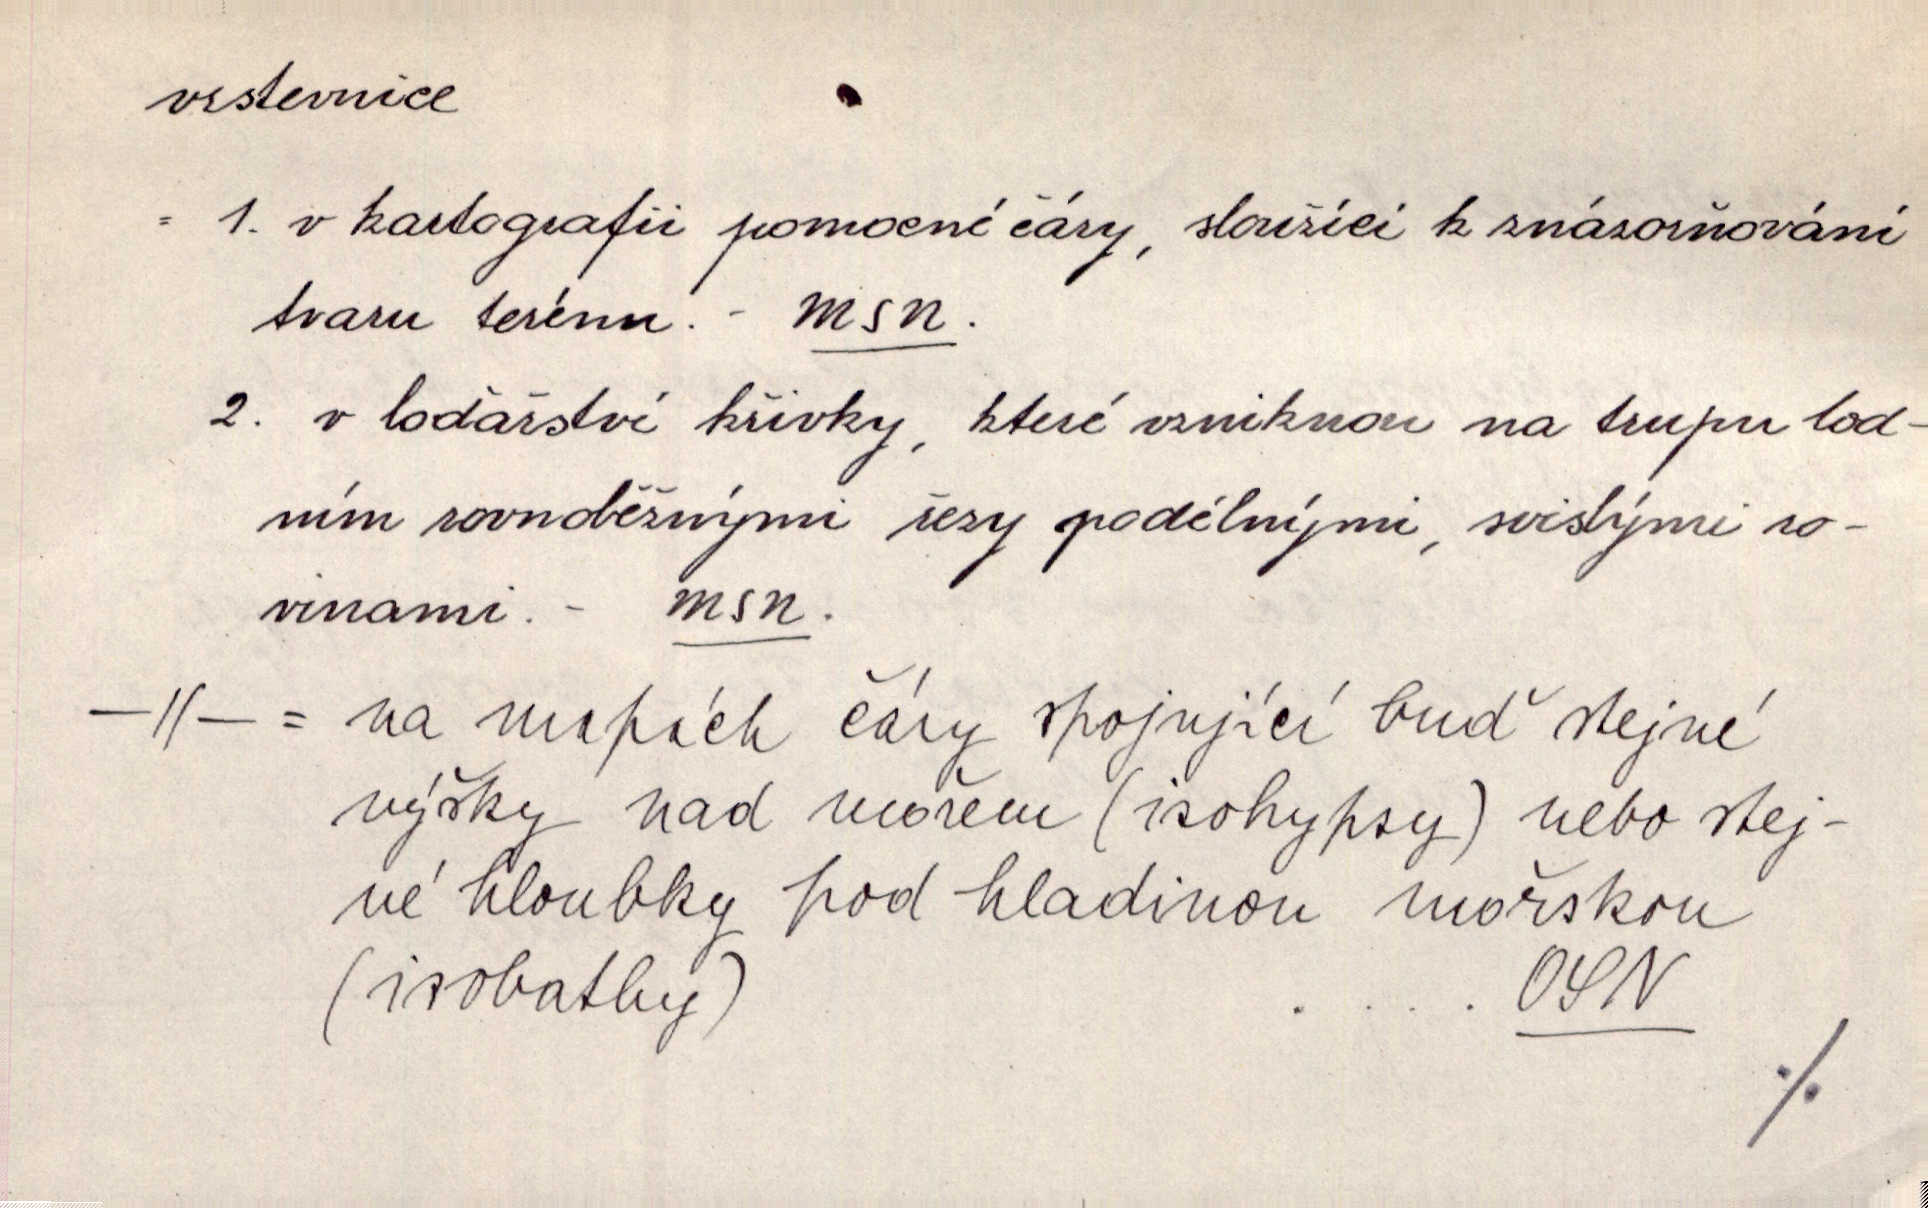 vrstevnice
= 1. v kartografii pomocné čáry, sloužící k znázorňování
tvaru terénu. - MSN.
2. v loďařství křivky, které vzniknou na trupu lod-
ním rovnoběžnými řezy podélnými, svislými ro-
vinami. - MSN.
—〃— = na mapách čáry spojující buď stejné
výšky nad mořem (isohypsy) nebo stej-
né hloubky pod hladinou mořskou
(isobathy) . . . . OSN
./.